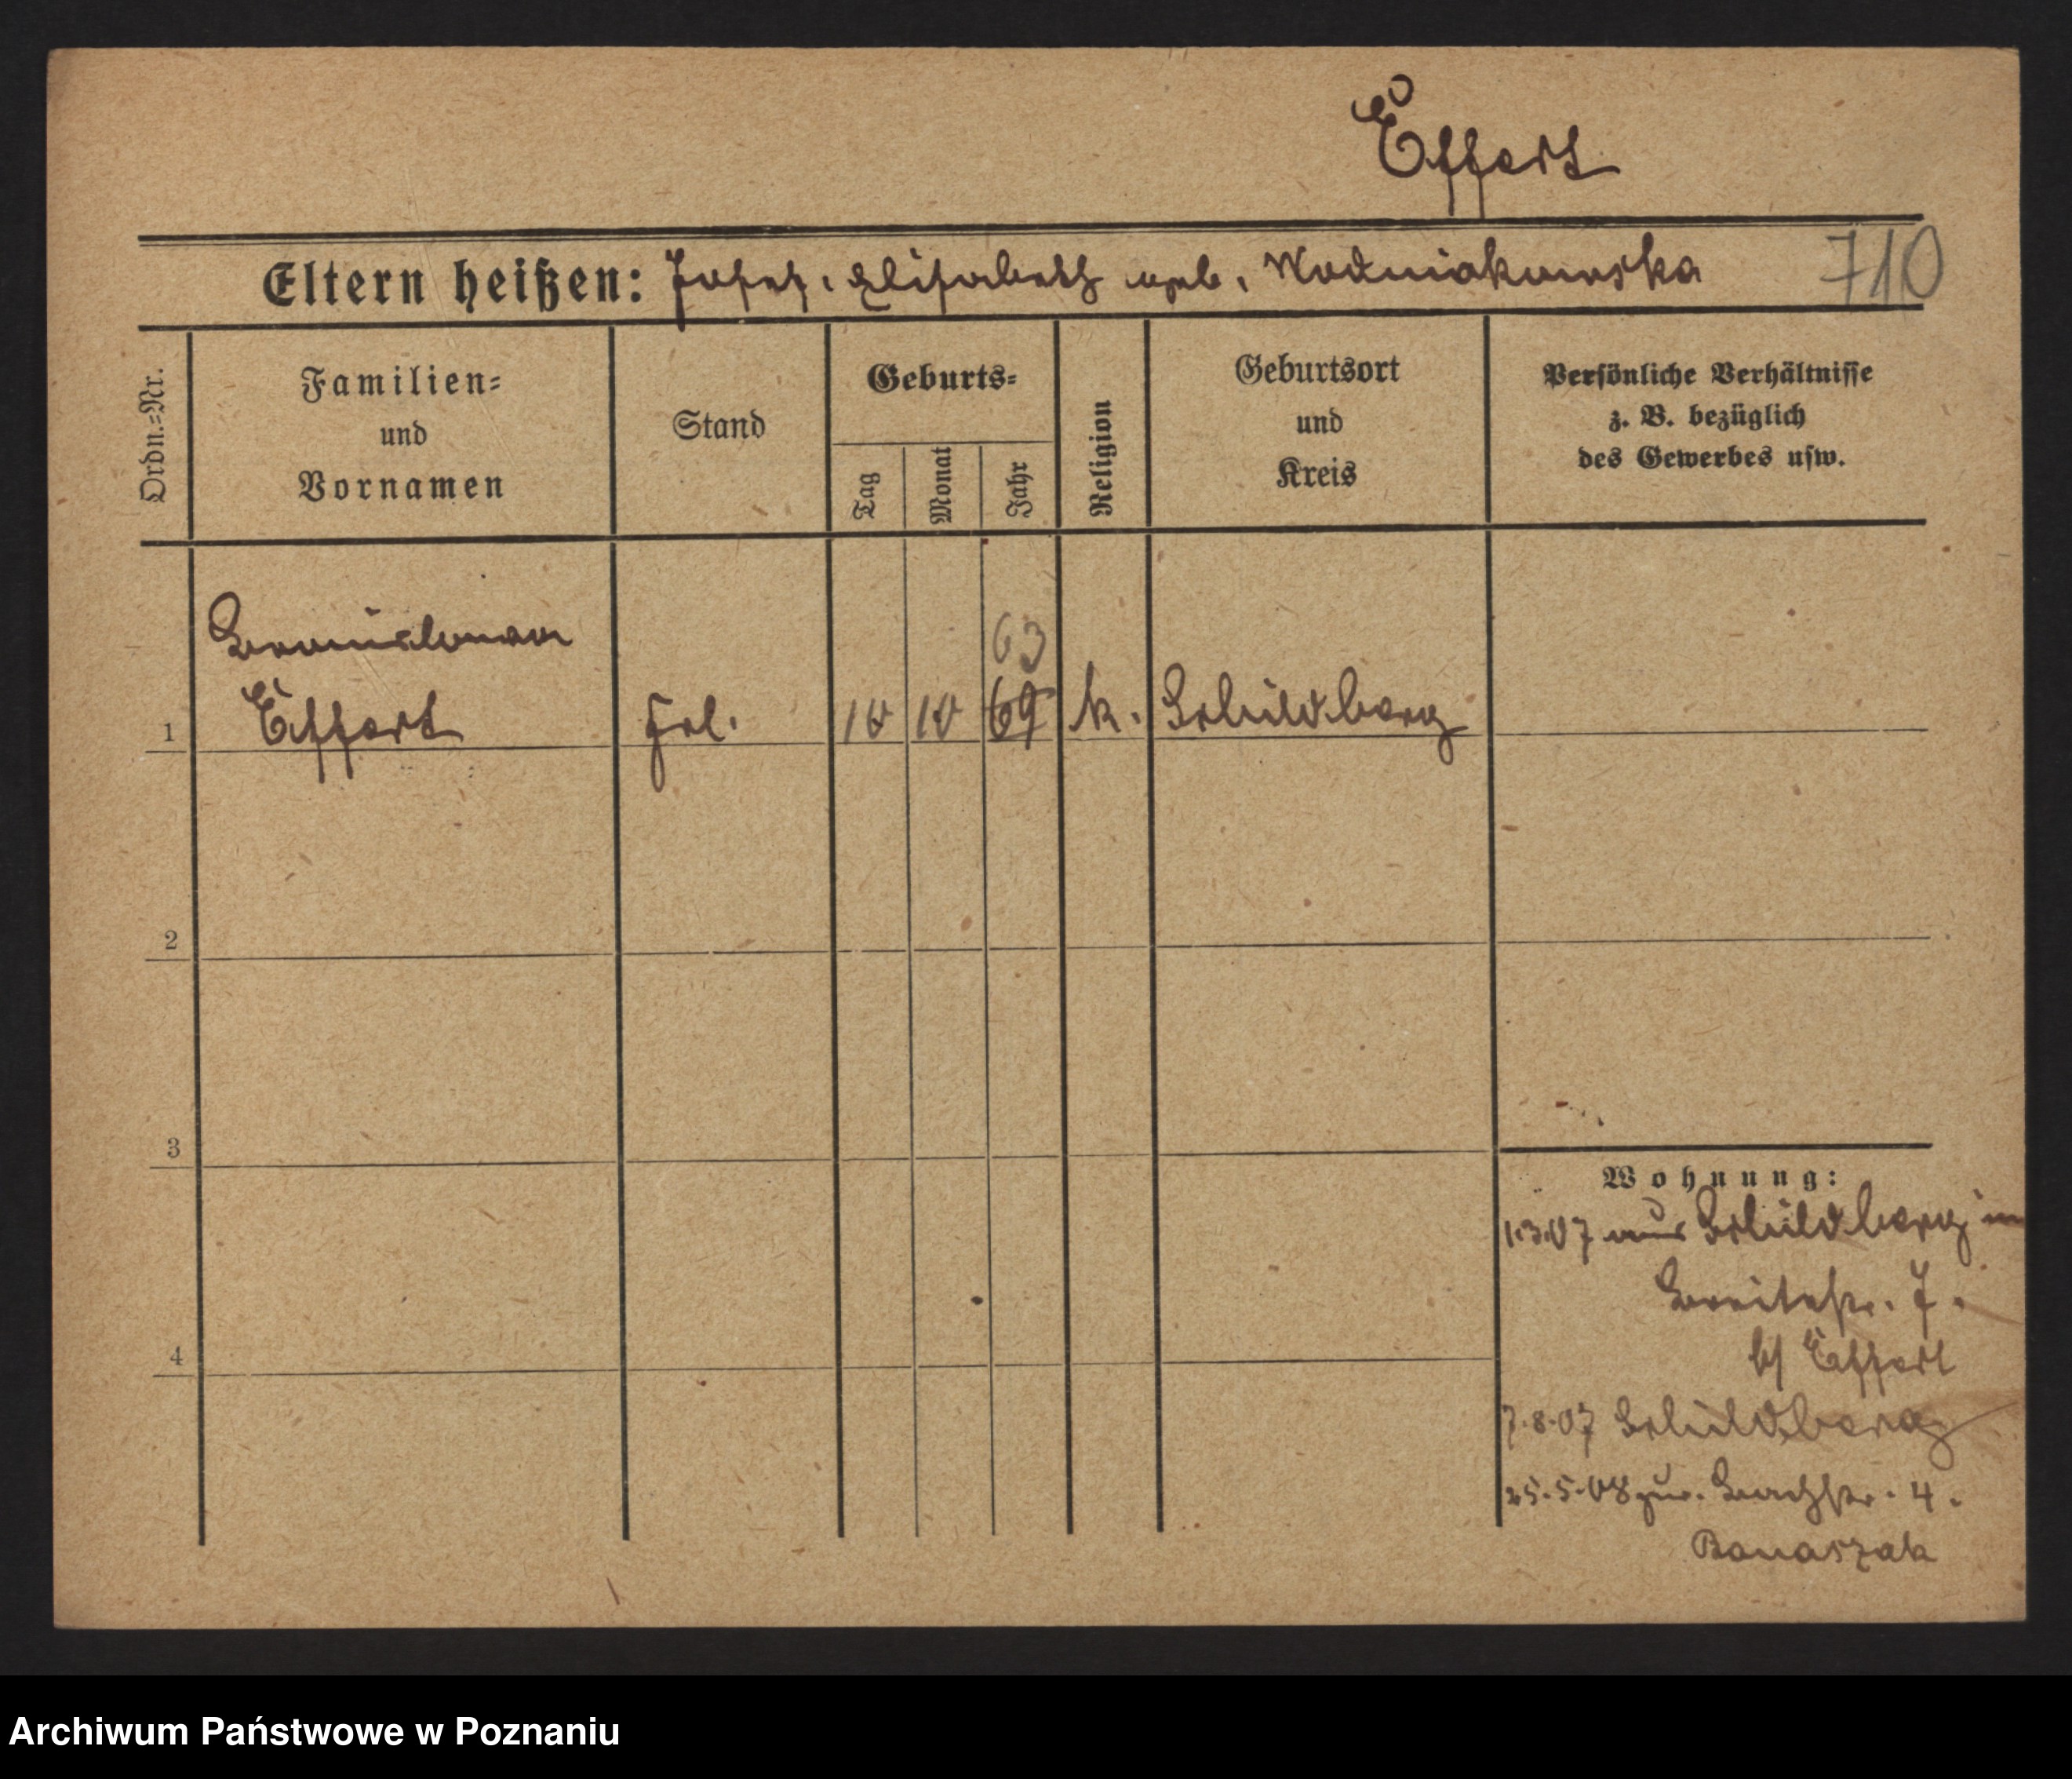 Effert
Eltern heißen: Josef, Elisabeth geb. Wodniakowska 710
Ordn.=Nr.
Familien=
und
Vornamen
Stand
Geburts=
Tag
Monat
Jahr
Religion
Geburtsort
und
Kreis
Persönliche Verhältnisse
z. B. bezüglich
des Gewerbes usw.
Bronislawa
63
1 Effert Frl. 10 10 69 k. Schildberg
2
3
4
Wohnung:
1.3.07 aus Schildberg in
Breitestr. 7.
b/ Effert
7.8.07 Schildberg
25.5.08 zur. Bachstr. 4.
Banaszak
Archiwum Państwowe w Poznaniu